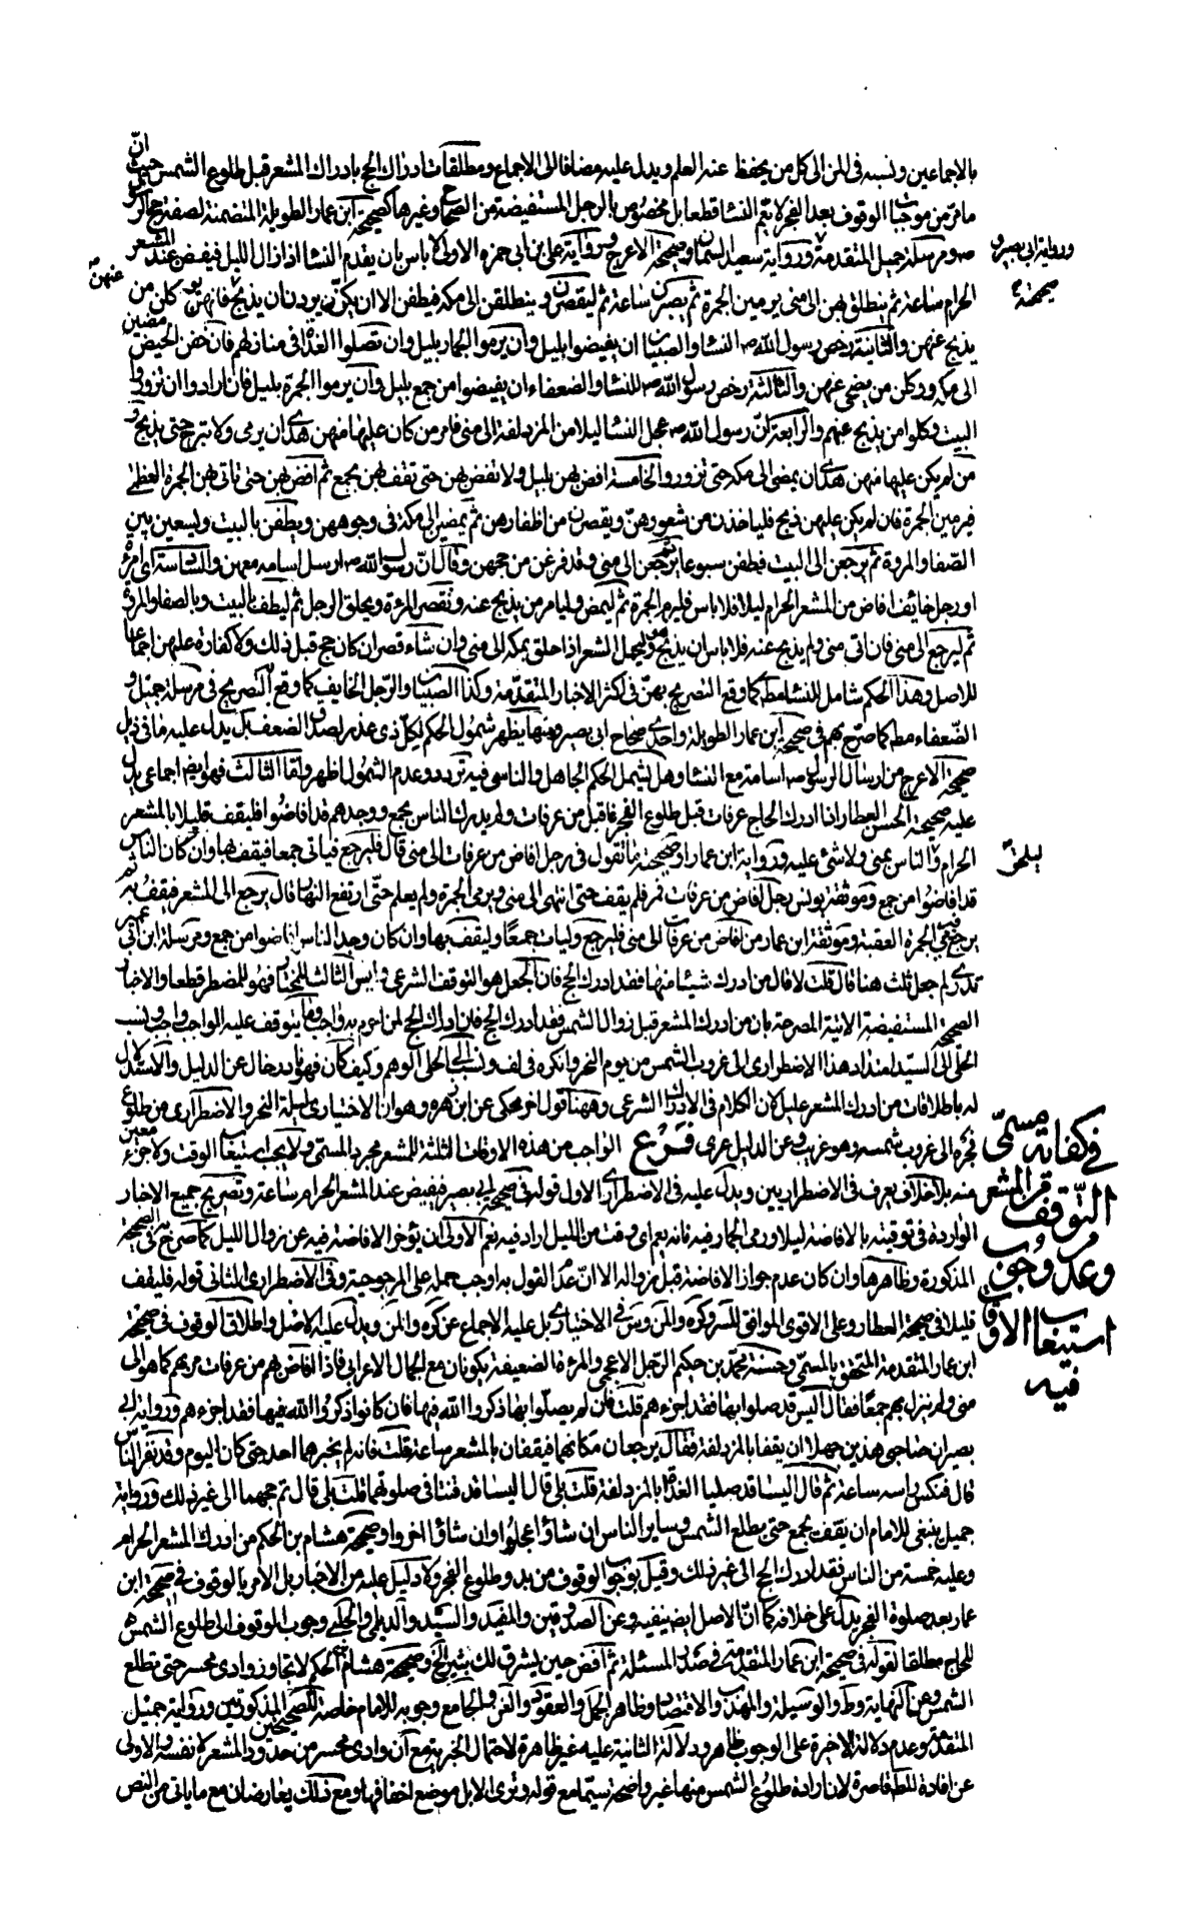 بالاجماعين ونسبه فى المن الى كل من يحفظ عنه العلم ويدل عليه مضافا الى الاجماع ومطلقات ادراك الحج بادراك المشعر قبل طلوع الشمس حيث انّ
ما مرّ من موجبات الوقوف بعد الفجر لا يعمّ النساء قطعا بل مخصوص بالرجل المستفيضة من الصحاح وغيرها كصحيحة ابن عمار الطويلة المتضمنة لصفة حج
ومرسلة جميل المتقدمة ورواية سعيد السمان وصحيحة الاعرج ورواية على بن ابى حمزة الاولى لا باس بان يقدم النساء اذا زال الليل فيقفن عند المشعر
ورواية ابى بصير و
صحيحة
الحرام ساعة ثم ينطلق بهن الى منى يرمين الجمرة ثم يصبرن ساعة ثم ليقصرن وينطلقن الى مكة فيطفن الا ان يكنّ يردن ان يذبح عنهن فانهن يوكلن من
عنهن
يذبح عنهن والثانية رخص رسول الله ص النساء والصبيان ان يفيضوا بليل وان يرموا الجمار بليل وان تصلوا الغداة فى منازلهم فان خفن الحيض مضين
الى مكة ووكلن من يضحى عنهن والثالثة رخص رسول الله ص للنساء والضعفاء ان يفيضوا من جمع بليل وان يرموا الجمرة بليل فان ارادوا ان تزوروا
البيت وكلوا من يذبح عنهم والرابعة انّ رسول الله ص عجل النساء ليلا من المزدلفة الى منى فامر من كان عليها منهن هدى ان يرمى ولا تبرح حتى يذبح و
من لم يكن عليها منهن هدى ان يمضى الى مكة حتى تزور والخامسة افض بهن بليل ولا تفض بهن حتى تقف بهن بجمع ثم افض بهن حتى تاتى بهن الجمرة العظمى
فيرمين الجمرة فان لم يكن عليهن ذبح فلياخذن من شعورهنّ ويقصرن من اظفارهن ثم يمضين الى مكة فى وجوههن ويطفن بالبيت ويسعين بين
الصّفا والمروة ثم يرجعن الى البيت فيطفن سبوعا ثم يرجعن الى منى وقد فرغن من حجهن وقال انّ رسول الله ص ارسل اسامه معهن والسادسة اى امرئة
او رجل خائف افاض من المشعر الحرام ليلا فلا باس فليرم الجمرة ثم ليمض وليامر من يذبح عنه وتقصر المرءة ويحلق الرجل ثم ليطف بالبيت وبالصفا والمروة
ثم ليرجع الى منى فان اتى منى ولم يذبح عنه فلا باس ان يذبح هو وليحمل الشعر اذا حلق بمكة الى منى وان شاء قصر ان كان حج قبل ذلك ولا كفارة عليهن اجماعا
للاصل وهذا الحكم شامل للنساء مط كما وقع التصريح بهنّ فى اكثر الاخبار المتقدّمة وكذا الصبيان والرّجل الخايف كما وقع التصريح فى مرسلة جميل و
الضّعفاء مط كما صرّح بهم فى صحيحة ابن عمار الطويلة واحدى صحاح ابى بصير ومنها يظهر شمول الحكم لكلّ ذى عذر لصدق الضعف بل يدل عليه ما فى ذيل
صحيحة الاعرج من ارسال الرسول ص اسامة مع النساء وهل يشمل الحكم الجاهل والناسى فيه تردد وعدم الشمول اظهر وامّا الثالث فهو ايضا اجماعى يدل
عليه صحيحة الحسن العطار اذا ادرك الحاج عرفات قبل طلوع الفجر فاقبل من عرفات ولم يدرك الناس بجمع ووجدهم قد افاضوا فليقف قليلا بالمشعر
الحرام وليلحق الناس بمنى ولا شئ عليه ورواية ابن عمار او صحيحته ما تقول فى رجل افاض من عرفات الى منى قال فليرجع فياتى جمعا فيقف بها وان كان الناس
قد افاضوا من جمع وموثقة يونس رجل افاض من عرفات فمرّ فلم يقف حتى انتهى الى منى ورمى الجمرة ولم يعلم حتّى ارتفع النهار قال يرجع الى المشعر فيقف به ثم
يرجع فيرمى الجمرة العقبة وموثقة ابن عمار من افاض من عرفات الى منى فليرجع وليات جمعًا وليقف بها وان كان وجد الناس افاضوا من جمع ومرسلة ابن ابى عمير
تدرى لم جعل ثلث هنا قال قلت لا قال من ادرك شيئا منها فقد ادرك الحج فان الجعل هو التوقف الشرعى وليس الثالث للمختار فهو للمضطر قطعا والاخبار
الصحيحة المستفيضة الاتية المصرحة بان من ادرك المشعر قبل زوال الشمس فقد ادرك الحج فان ادراك الحج لمن امر به واجب وما يتوقف عليه الواجب واجب ونسب
الحلى الى السيّد امتداد هذا الاضطرارى الى غروب الشمس من يوم النحر وانكره فى لف ونسب الحلى الى الوهم وكيف كان فهو نادر خال عن الدليل والاستدلال
له باطلاقات من ادرك المشعر عليل لان الكلام فى الادراك الشرعى وههنا قول اخر محكى عن ابن زهره وهو ان الاختيارى ليلة النحر والاضطرارى من طلوع
فجره الى غروب شمسه وهو غريب وعن الدليل عرى فَرْع الواجب من هذه الاوقات الثلثة للمشعر مجرد المسمّى ولا يجب استيعاب الوقت ولا جزء معين
منه بلا خلاف يعرف فى الاضطراريين ويدل عليه فى الاضطرارى الاول قوله فى صحيحة ابى بصير فيقفن عند المشعر الحرام ساعة وتصريح جميع الاخبار
الواردة فى توقيته بالافاضة ليلا ورمى الجمار فيه فانه يعم اى وقت من الليل اراد فيه نعم الاولى ان يؤخر الافاضة فيه عن زوال الليل كما صرح به فى الصحيحة
المذكورة وظاهرها وان كان عدم جواز الافاضة قبل زواله الا انّ عدم القول به اوجب حمله على المرجوحية وفى الاضطرارى الثانى قوله فليقف
قليلا فى صحيحة العطار وعلى الاقوى الموافق للسر وكره والمن وس فى الاختيارى بل عليه الاجماع عن كره والمن ويدل عليه الاصل واطلاق الوقوف فى صحيحة
ابن عمار المتقدمة المتحقق بالمسمّى وحسنة محمّد بن حكيم الرّجل الاعجمى والمرءة الضعيفة يكونان مع الجمال الاعرابى فاذا افاض بهم من عرفات مر بهم كما هو الى
منى ولم ينزل بهم جمعًا فقال اليس قد صلوا بها فقد اجزءهم قلت فان لم يصلّوا بها ذكروا الله فيها فان كانوا ذكروا الله فيها فقد اجزءهم ورواية ابى
بصير ان صاحبىّ هذين جهلا ان يقفا بالمزدلفة فقال يرجعان مكانهما فيقفان بالمشعر ساعة قلت فانه لم يخبرهما احد حتى كان اليوم وقد نفر الناس
قال فنكس راسه ساعة ثم قال اليسا قد صليا الغداة بالمزدلفة قلت بلى قال اليسا قد قنتا فى صلوتهما قلت بلى قال تم حجهما الى غير ذلك ورواية
جميل ينبغى للامام ان يقف بجمع حتى يطلع الشمس وساير الناس ان شاؤا عجلوا وان شاؤا اخروا وصحيحة هشام بن الحكم من ادرك المشعر الحرام
وعليه خمسة من الناس فقد ادرك الحج الى غير ذلك وقيل بوجوب الوقوف من بدو طلوع الفجر ولا دليل عليه من الاخبار بل الامر بالوقوف فى صحيحة ابن
عمار بعد صلوة الفجر يدل على خلافه كما انّ الاصل ايضا ينفيه وعن الصدوقين والمفيد والسيّد والديلمى والحلبى وجوب الوقوف الى طلوع الشمس
للحاج مطلقا لقوله فى صحيحة ابن عمار المتقدمة فى صدر المسئلة ثم افض حين يشرق لك ثبير الخ وصحيحة هشام بن الحكم لا تجاوز وادى محسر حتى تطلع
الشمس وعن النهاية وط والوسيلة والمهذب والاقتصاد وظاهر الجمل والعقود والغنية والجامع وجوبه للامام خاصة للصحيحين المذكورتين ورواية جميل
المتقدمة وعدم دلالة الاخرة على الوجوب ظاهر ودلالة الثانية عليه غير ظاهرة لاحتمال الخبرية مع ان وادى محسر من حدود المشعر لا نفسه والاولى
عن افادة المط قاصرة لان ارادة طلوع الشمس منها غير واضحة سيّما مع قوله وترى الابل موضع اخفافها ومع ذلك يعارضان مع ما ياتى من النص
فى كفاية مسمّى
التوقف فى المشعر
وعدم وجوب
استيعاب الاوقات
فيه